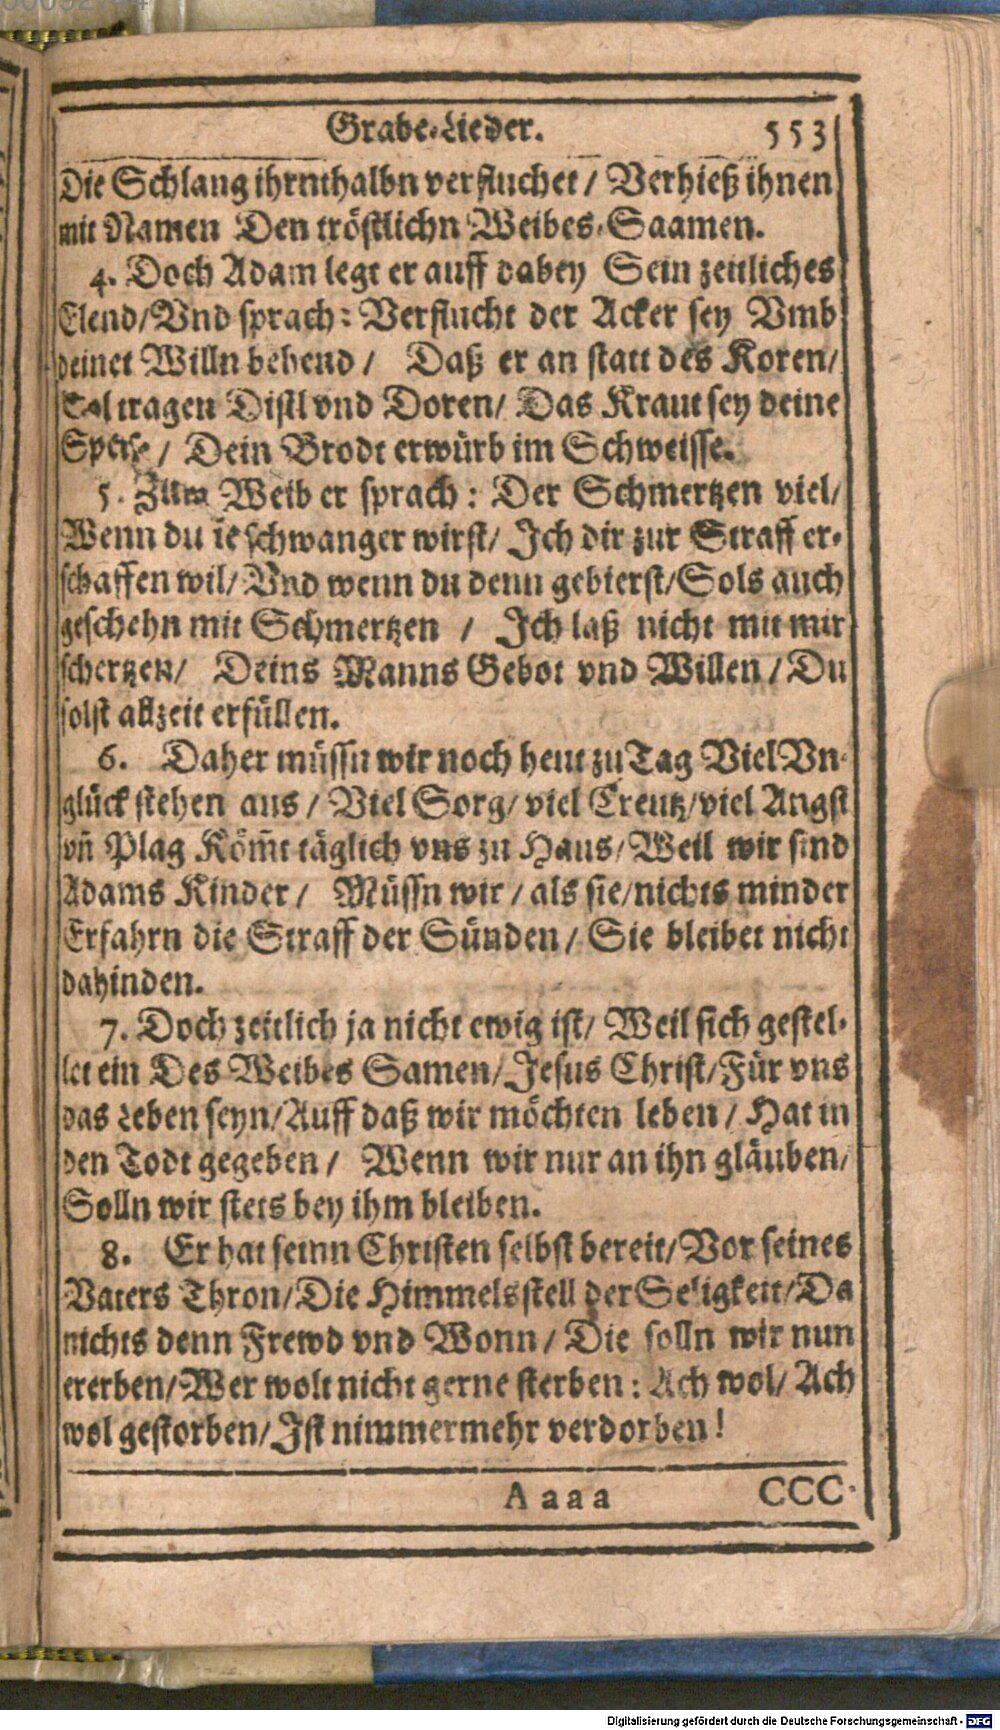 Grabe-Lieder. 553
Die Schlang ihrnthalbn verfluchet / Verhieß ihnen
mit Namen Den tröstlichn Weibes-Saamen.
4. Doch Adam legt er auff dabey Sein zeitliches
Elend/Vnd sprach: Verflucht der Acker sey Vmb
deinet Willn behend / Daß er an statt des Koren/
Sol tragen Distl vnd Doren/ Das Kraut sey deine
Speise / Dein Brodt erwürb im Schweisse.
5. Zum Weib er sprach: Der Schmertzen viel/
Wenn du ie schwanger wirst/ Ich dir zur Straff er-
schaffen wil/ Vnd wenn du denn gebierst/Sols auch
geschehn mit Schmertzen / Ich laß nicht mit mir
schertzen/ Deins Manns Gebot vnd Willen / Du
solst allzeit erfüllen.
6. Daher müssn wir noch heut zu Tag Viel Vn-
glück stehen aus / Viel Sorg/ viel Creutz/viel Angst
vñ PlagKöm̃t täglich vns zu Haus/ Weil wir sind
Adams Kinder / Müssn wir / als sie/nichts minder
Erfahrn die Straff der Sünden / Sie bleibet nicht
dahinden.
7. Doch zeitlich ja nicht ewig ist/ Weil sich gestel-
let ein Des Weibes Samen/Jesus Christ/Für vns
das Leben seyn/Auff daß wir möchten leben / Hat in
den Todt gegeben / Wenn wir nur an ihn gläuben/
Solln wir stets bey ihm bleiben.
8. Er hat seinn Christen selbst bereit/Vor seines
Vaters Thron/Die Himmelsstell der Seligkeit/Da
nichts denn Frewd vnd Wonn / Die solln wir nun
ererben/Wer wolt nicht gerne sterben: Ach wol/ Ach
wol gestorben/Ist nimmermehr verdorben!
A a a a CCC.
Digitalisierung gefördert durch die Deutsche Forschungsgemeinschaft - DFG